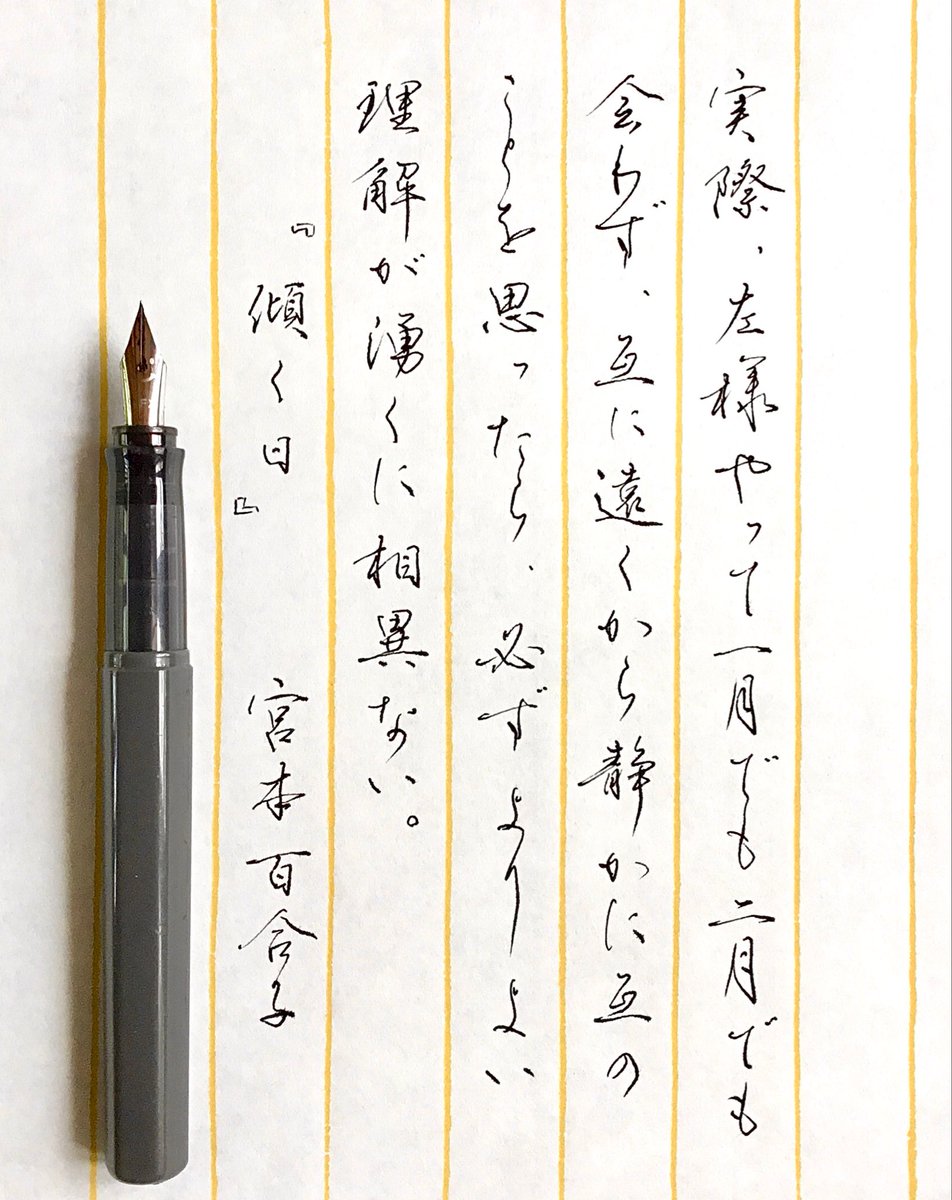 実際、左様やって一月でも二月でも
会わず、互に遠くから静かに互の
ことを思ったら、必ずよりよい
理解が湧くに相異ない。
『傾く日』 宮本百合子